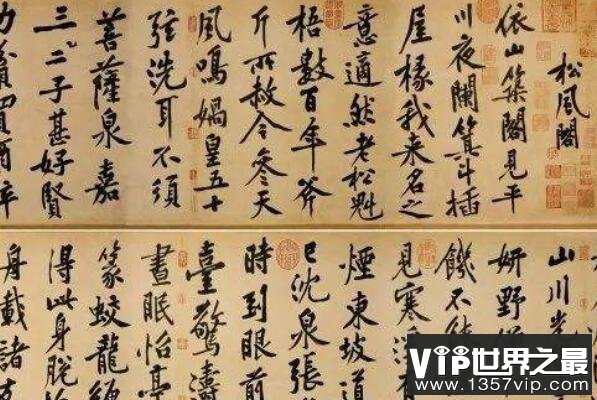 松風閣
依山築閣見平
川夜闌箕斗插
屋椽我來名之
意適然老松魁
梧數百年斧
斤所赦今參天
風鳴媧皇五十
弦洗耳不須
菩薩泉嘉
三二子甚好賢
力貧買酒醉
山川光
妍野僧
饑不能
見寒溪
煙東坡道
已沈泉張
時到眼前
臺驚濤
晝眠怡亭
篆蛟龍纏
得此身脫
舟載諸
VIP世界之最
www.1357vip.com